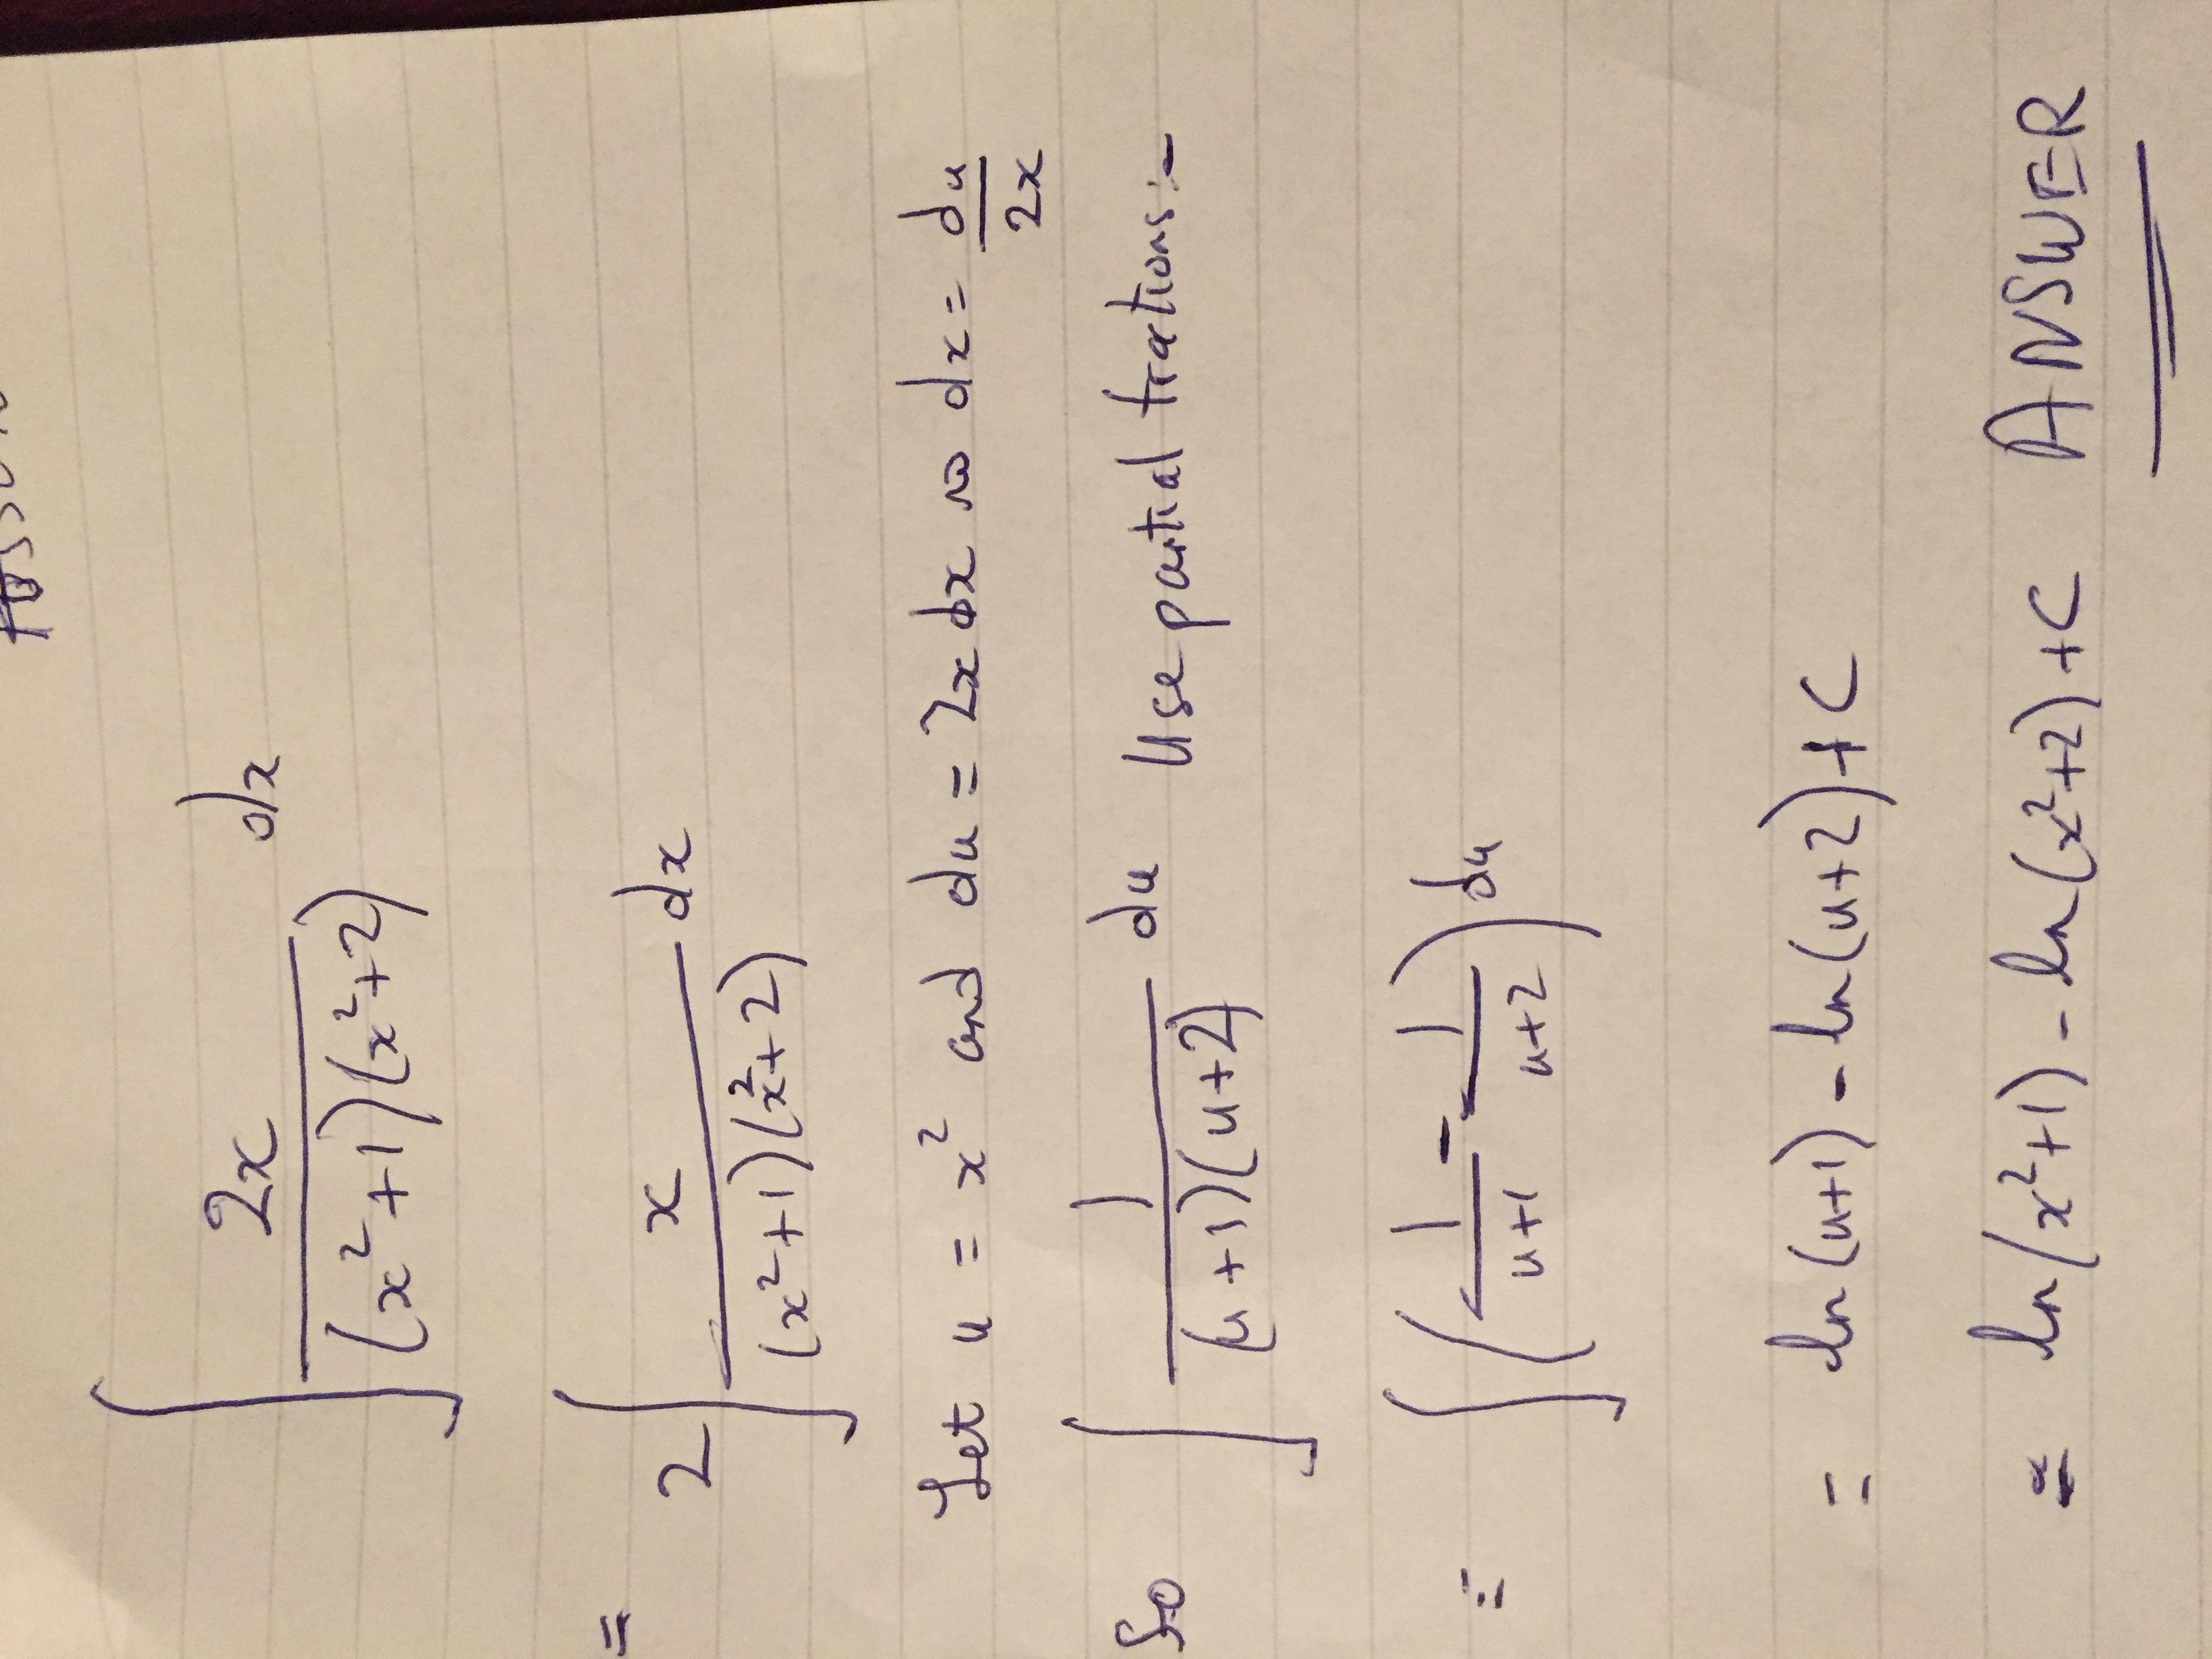 ∫ 2x/((x²+1)(x²+2)) dx
= 2∫ x/((x²+1)(x²+2)) dx
Let u = x² and du = 2x dx so dx = du/2x
So ∫ 1/((u+1)(u+2)) du Use partial fractions:-
= ∫(1/(u+1) - 1/(u+2)) du
= ln(u+1) - ln(u+2) + C
= ln(x²+1) - ln(x²+2) + C ANSWER